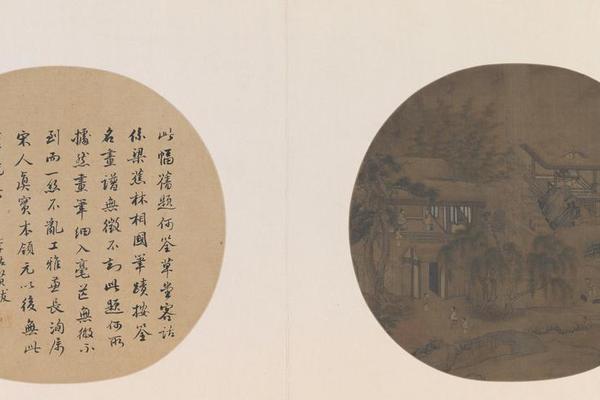 此幅舊題何筌草堂客話
係梁蕉林相國筆蹟按筌
名畫譜無徵不知此題何所
據然畫筆細入毫芒無微不
到而一絲不亂工雅兼長洵屬
宋人真實本領元以後無此